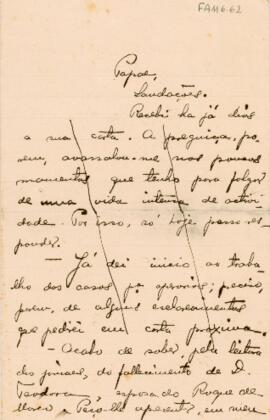 FAM6-62
Papae,
Saudações.
Recebi ha já dias
a sua carta. A preguiça, po-
rem, avassalou-me nos poucos
momentos que tenho para folgar
de uma vida intensa de activi-
dade. Por isso, só hoje posso res-
ponder.
— Já dei inicio ao traba-
lho dos casos preciso,
porem, de alguns esclarecimentos
que pedirei em carta proxima.
— Acabo de saber, pela leitura
dos jornaes, do fallecimento de D.
Theodora, esposa do Roque de
Peço-lhe apresente, em meu